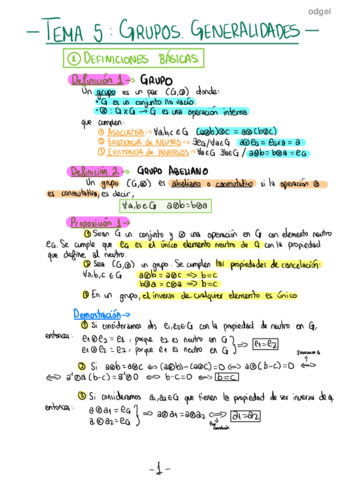 odgei
— TEMA 5: GRUPOS. GENERALIDADES —
① DEFINICIONES BÁSICAS
Definición 1 → GRUPO
Un grupo es un par (G,⊗) donde:
• G es un conjunto no vacío.
• ⊗: G×G → G es una operación interna
que cumplen:
① ASOCIATIVA → ∀a,b,c∈G (a⊗b)⊗c = a⊗(b⊗c)
② EXISTENCIA DE NEUTRO → ∃e_G∈G / a⊗e_G = e_G⊗a = a
③ EXISTENCIA DE INVERSOS → ∀a∈G ∃b∈G / a⊗b = b⊗a = e_G
Definición 2 → GRUPO ABELIANO
Un grupo (G,⊗) es abeliano o conmutativo si la operación ⊗
es conmutativa, es decir,
∀a,b∈G a⊗b = b⊗a
Proposición 1
① Sean G un conjunto y ⊗ una operación en G con elemento neutro
e_G. Se cumple que e_G es el único elemento neutro de G con la propiedad
que define al neutro.
② Sea (G,⊗) un grupo. Se cumplen las propiedades de cancelación:
∀a,b,c ∈ G a⊗b = a⊗c ⟹ b = c
b⊗a = c⊗a ⟹ b = c
③ En un grupo, el inverso de cualquier elemento es único
Demostración →
① Si consideramos dos e₁,e₂∈G con la propiedad de neutro en G,
entonces: e₁⊗e₂ = e₁, porque e₂ es neutro en G
e₁⊗e₂ = e₂, porque e₁ es neutro en G } ⟹ e₁ = e₂
② Si a⊗b = a⊗c ⟺ (a⊗b)-(a⊗c) = 0 ⟺ a⊗(b-c) = 0 ⟺
⟺ a⁻¹⊗a (b-c) = a⁻¹⊗0 ⟺ b-c = 0 ⟺ b = c
③ Si consideramos a₁,a₂∈G que tienen la propiedad de ser inversos de a,
entonces: a⊗a₁ = e_G
a⊗a₂ = e_G } ⟹ a⊗a₁ = a⊗a₂ ⟺ a₁ = a₂
-1-